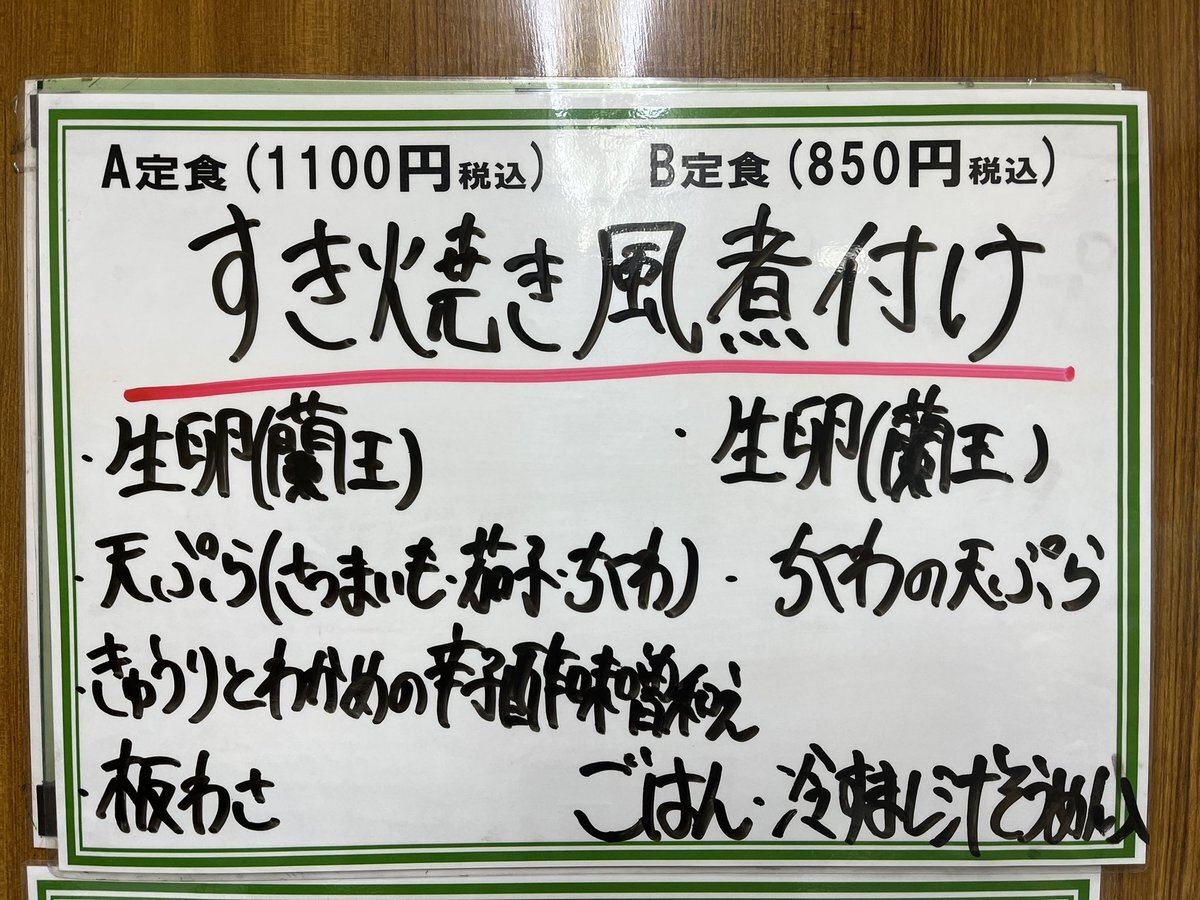 A定食(1100円税込) B定食(850円税込)
すき焼き風煮付け
・生卵(蘭王) ・生卵(蘭王)
・天ぷら(さつまいも・茄子・ちくわ) ・ちくわの天ぷら
・きゅうりとわかめの辛子酢味噌和え
・板わさ ごはん・冷すまし汁そうめん入